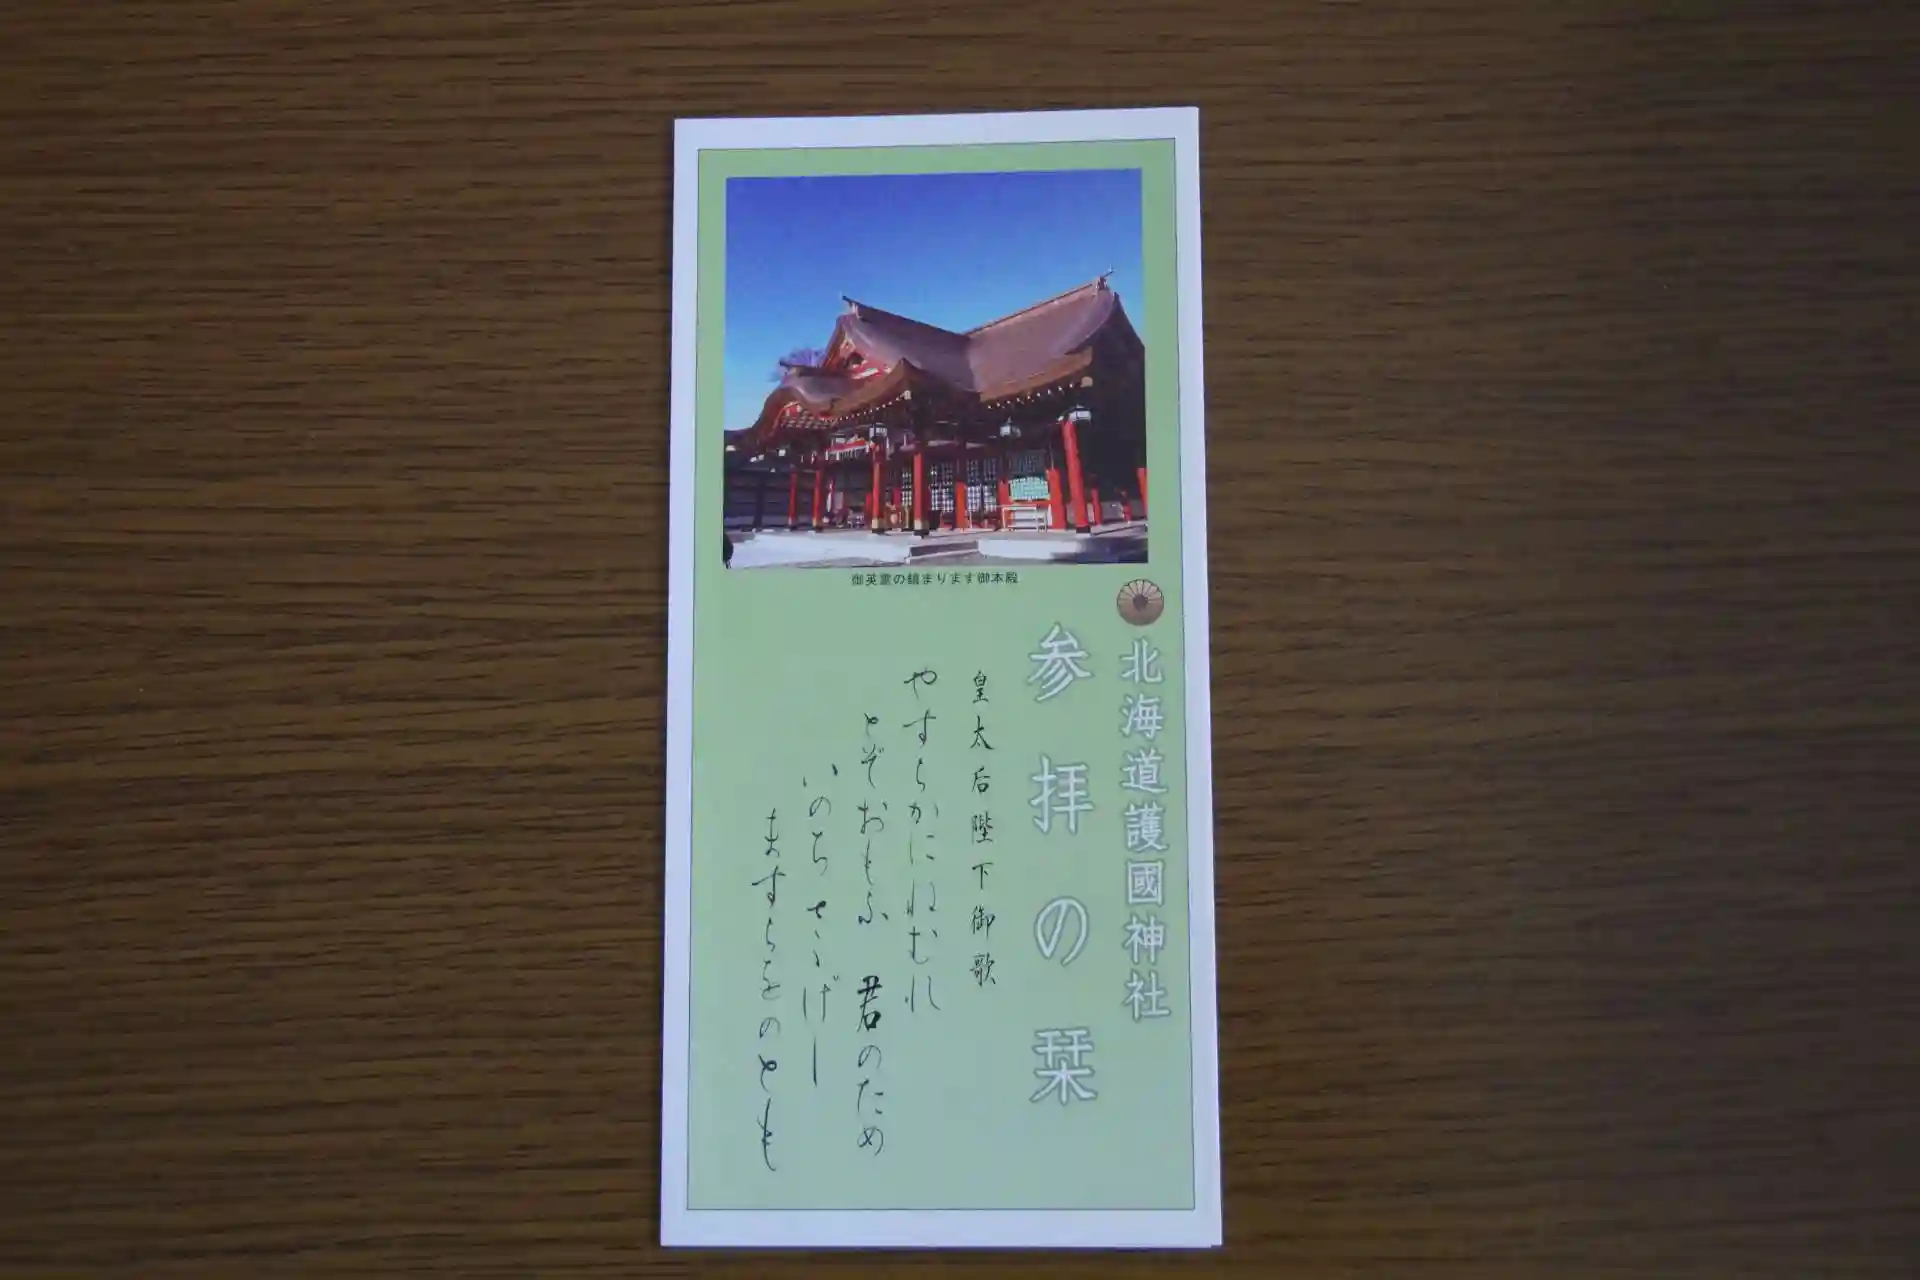 御英霊の鎮まります御本殿
北海道護國神社
参拝の栞
皇太后陛下御歌
やすらかにねむれ
とぞおもふ 君のため
いのちさゝげし
ますらをのとも